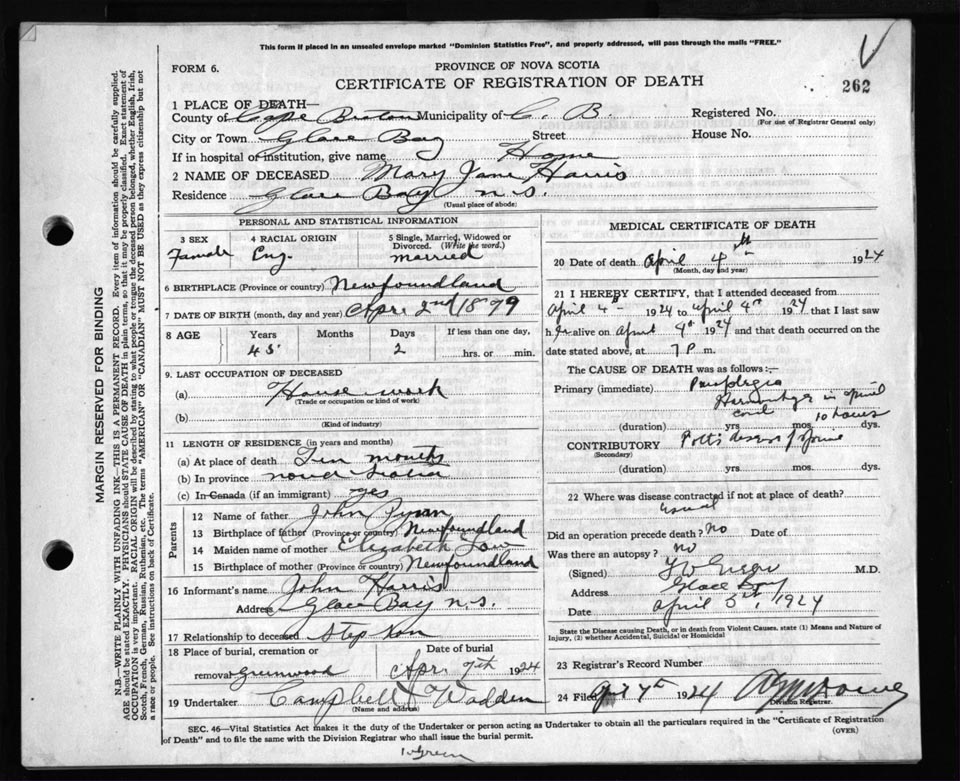 This form if placed in an unsealed envelope marked "Dominion Statistics Free", and properly addressed, will pass through the mails "FREE."
FORM 6.
PROVINCE OF NOVA SCOTIA
CERTIFICATE OF REGISTRATION OF DEATH
262
1 PLACE OF DEATH—
County of Cape Breton Municipality of C. B. Registered No.
(For use of Registrar General only)
City or Town Glace Bay Street House No.
If in hospital or institution, give name Home
2 NAME OF DECEASED Mary Jane Harris
Residence Glace Bay N.S.
(Usual place of abode)
PERSONAL AND STATISTICAL INFORMATION
3 SEX Female
4 RACIAL ORIGIN Eng.
5 Single, Married, Widowed or Divorced. (Write the word.) married
6 BIRTHPLACE (Province or country) Newfoundland
7 DATE OF BIRTH (month, day and year) Apr. 2nd 1879
8 AGE Years 45 Months Days 2 If less than one day, hrs. or min.
9. LAST OCCUPATION OF DECEASED
(a) House work
(Trade or occupation or kind of work)
(b)
(Kind of industry)
11 LENGTH OF RESIDENCE (in years and months)
(a) At place of death Ten months
(b) In province nova scotia
(c) In Canada (if an immigrant) yes
Parents
12 Name of father John
13 Birthplace of father (Province or country) Newfoundland
14 Maiden name of mother Elizabeth
15 Birthplace of mother (Province or country) Newfoundland
16 Informant's name John Harris
Address Glace Bay N.S.
17 Relationship to deceased Step son
18 Place of burial, cremation or removal Greenwood
Date of burial Apr. 7th 1924
19 Undertaker Campbell & Wadden
(Name and address)
MEDICAL CERTIFICATE OF DEATH
20 Date of death April 4th 1924
(Month, day and year)
21 I HEREBY CERTIFY, that I attended deceased from
April 4th 1924 to April 4th 1924 that I last saw
h er alive on April 4th 1924 and that death occurred on the
date stated above, at 7 P. m.
The CAUSE OF DEATH was as follows:—
Primary (immediate) Paraplegia
Hemorrhage in spinal
cord 10 hours
(duration) yrs mos. dys.
CONTRIBUTORY Pott's disease of spine
(Secondary)
(duration) yrs mos. dys.
22 Where was disease contracted if not at place of death?
usual
Did an operation precede death? No Date of
Was there an autopsy? no
(Signed) M.D.
Address Glace Bay
Date April 5th, 1924
State the Disease causing Death, or in death from Violent Causes, state (1) Means and Nature of Injury, (2) whether Accidental, Suicidal or Homicidal
23 Registrar's Record Number
24 Filed April 7th 1924
Division Registrar.
SEC. 46—Vital Statistics Act makes it the duty of the Undertaker or person acting as Undertaker to obtain all the particulars required in the "Certificate of Registration of Death" and to file the same with the Division Registrar who shall issue the burial permit.
(OVER)
MARGIN RESERVED FOR BINDING
N.B.—WRITE PLAINLY WITH UNFADING INK—THIS IS A PERMANENT RECORD. Every item of information should be carefully supplied.
AGE should be stated EXACTLY. PHYSICIANS should STATE CAUSE OF DEATH in plain terms, so that it may be properly classified. Exact statement of
OCCUPATION is very important. RACIAL ORIGIN will be described by stating to what people or tongue the deceased person belonged, whether English, Irish,
Scotch, French, German, Russian, Ruthenian, etc. The terms "AMERICAN" OR "CANADIAN" MUST NOT BE USED as they express citizenship but not
a race or people. See instructions on back of Certificate.